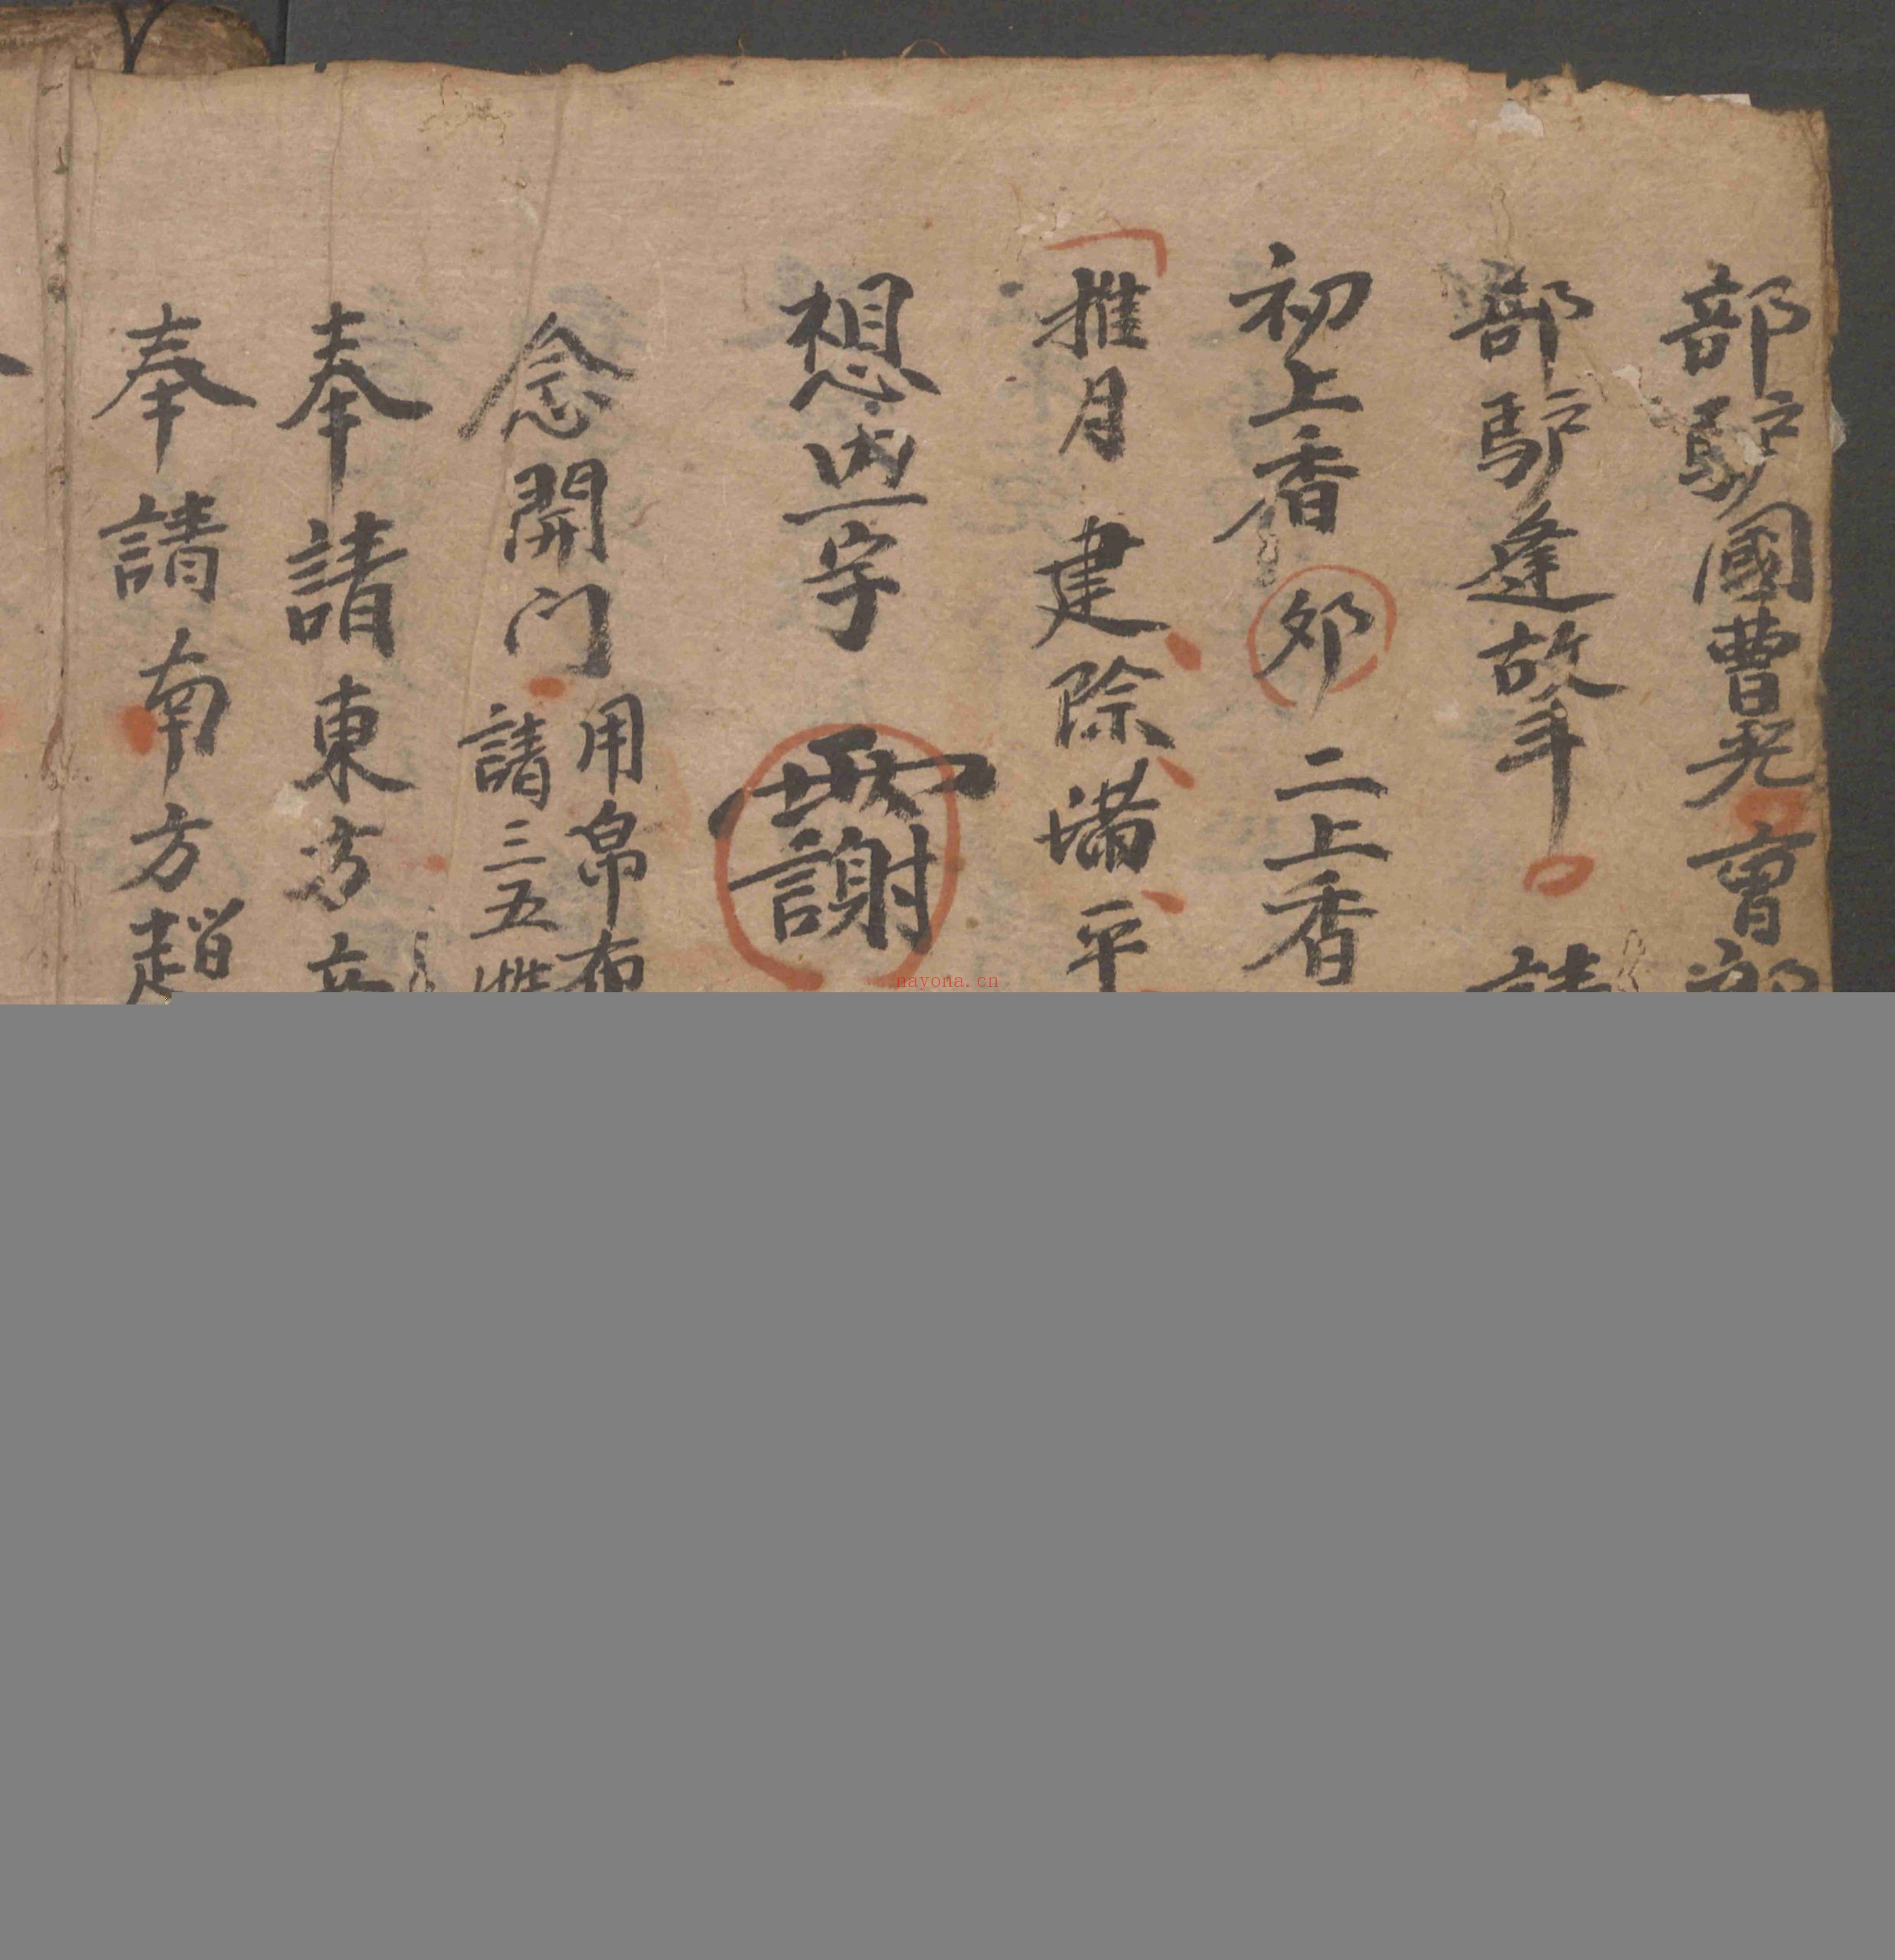 部馿國曹光曺部
部馿逢故年 請
初上香 二上香
推月 建除满平
想 字
謝
念開门
用帛布
請三五
奉請東方
奉請南方趙
nayona.cn